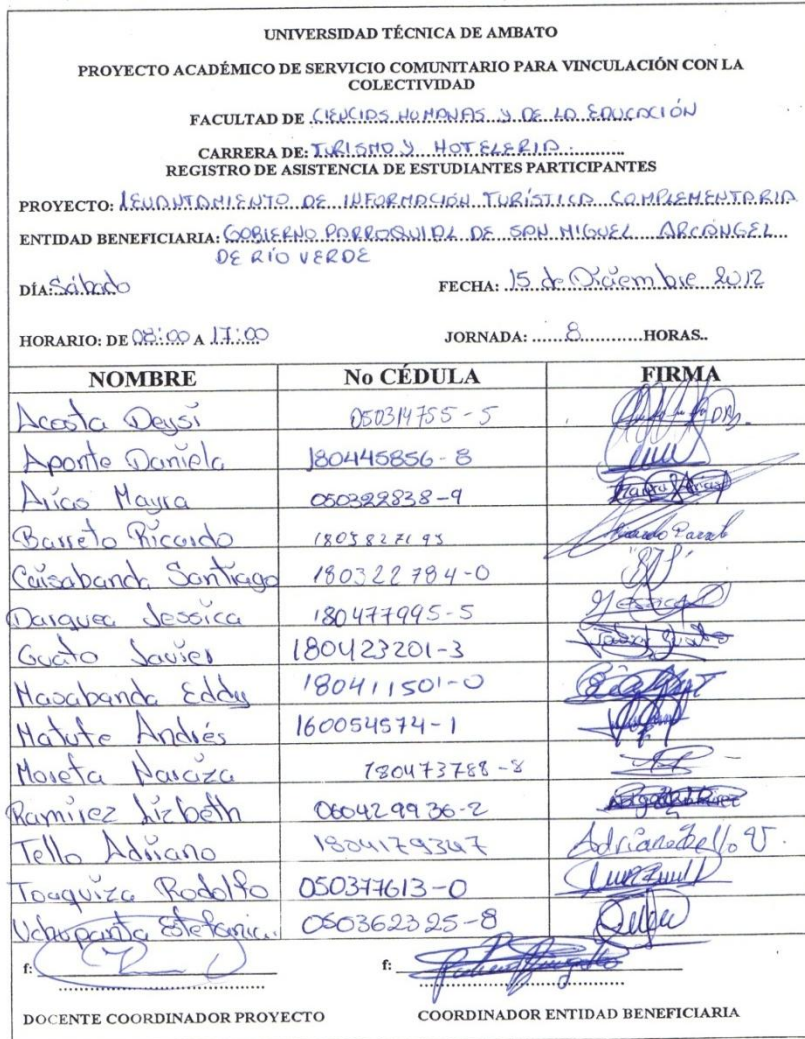 UNIVERSIDAD TÉCNICA DE AMBATO
PROYECTO ACADÉMICO DE SERVICIO COMUNITARIO PARA VINCULACIÓN CON LA
COLECTIVIDAD
FACULTAD DE CIENCIAS HUMANAS Y DE LA EDUCACIÓN
CARRERA DE: TURISMO Y HOTELERIA
REGISTRO DE ASISTENCIA DE ESTUDIANTES PARTICIPANTES
PROYECTO: LEVANTAMIENTO DE INFORMACIÓN TURÍSTICA COMPLEMENTARIA
ENTIDAD BENEFICIARIA: GOBIERNO PARROQUIAL DE SAN MIGUEL ARCÁNGEL
DE RIO VERDE
DÍA: Sábado FECHA: 15 de Diciembre 2012
HORARIO: DE 08:00 A 17:00 JORNADA: ......8...........HORAS..
NOMBRE No CÉDULA FIRMA
Acosta Deysi 050314755-5
Aponte Daniela 180445856-8
Arias Mayra 050322838-9
Barreto Ricardo
Caisabanda Santiago 180322784-0
Darquea Jessica 180477995-5 Jessica
Guato Javier 180423201-3
Masabanda Eddy 180411501-0
Matute Andrés 160054574-1
Moreta Narciza 180473788-8
Ramirez Lizbeth 060429936-2
Tello Adriano 1804179347 Adriano Tello V.
Toaquiza Rodolfo 050377613-0
Uchupanta Estefania 050362325-8
f: f:
DOCENTE COORDINADOR PROYECTO COORDINADOR ENTIDAD BENEFICIARIA